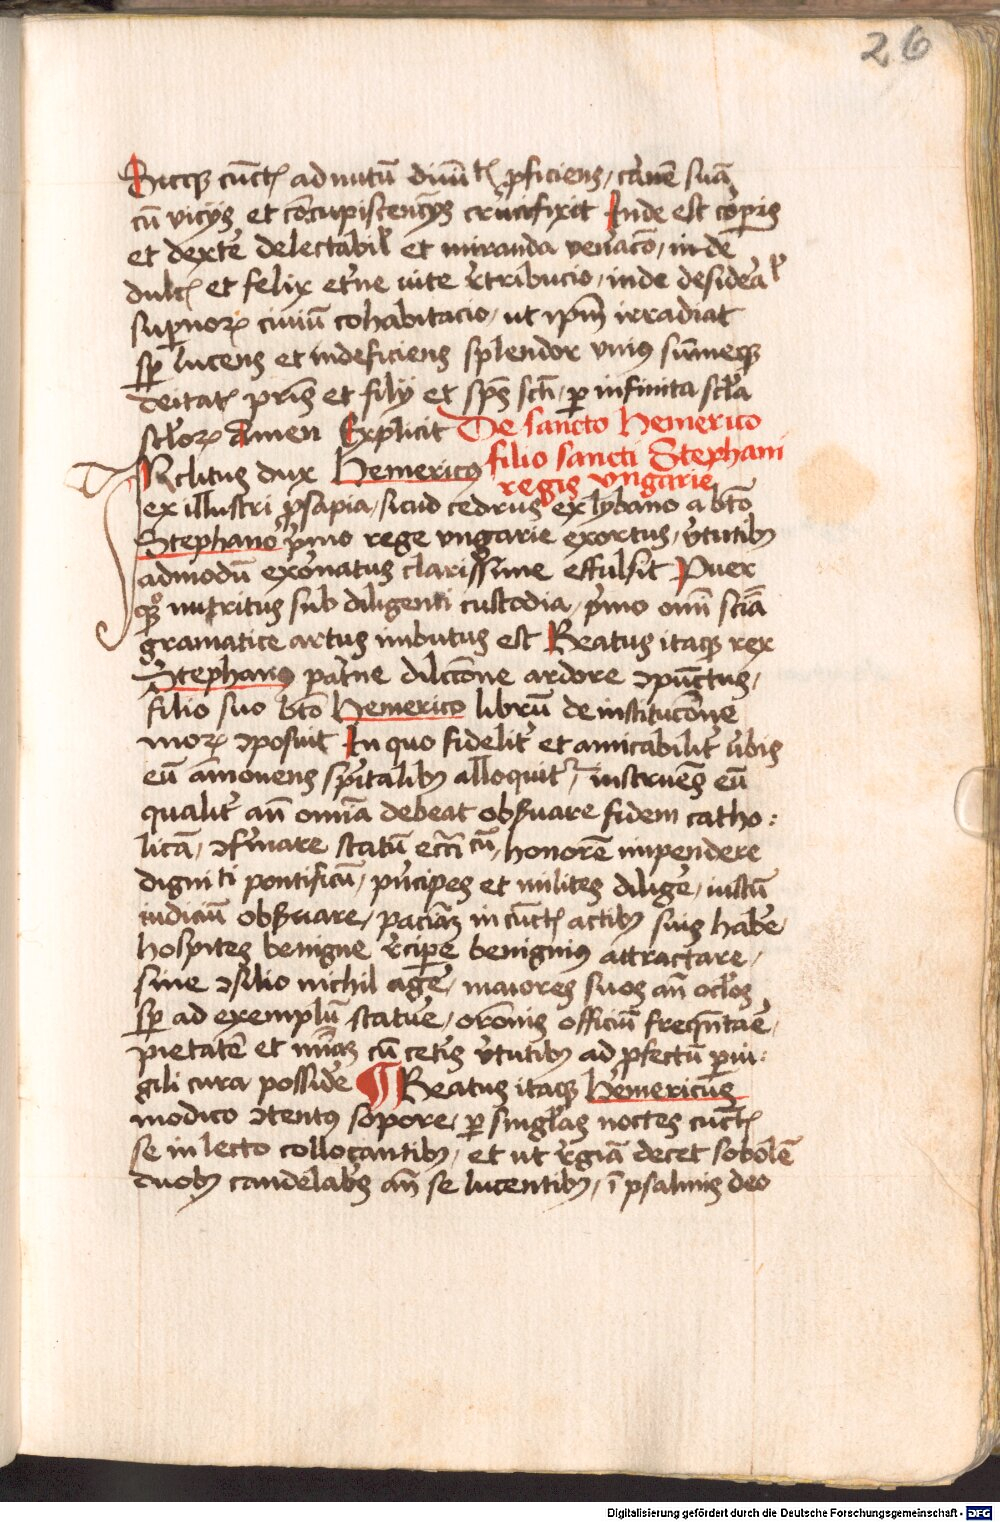 26
Sicq cunct ad nutū diuīt pficiens, carnē suā
cū vicijs et cōcupiscencijs crucifixit Inde est corpis
et dextre delectabil et miranda veneracō, inde
dulc et felix etne uite retribucio, inde desidera
supnor ciuiū cohabitacio, ut ipm irradiat
sp lucens et indeficiens splendor vni9 sūmeq
deitat pris et filij et sps scti, p infinita scla
sclor Amen Explicit De sancto Hemerico
filio sancti Stephani
regis vngarie
INclitus dux Hemeric9
ex illustri psapia, sicud cedrus ex lybano a bto
Stephano pmo rege vngarie exortus, vtutib
admodū exornatus clarissime effulsit Puer
qq nutritus sub diligenti custodia, pmo omī sciā
gramatice artus imbutus est Beatus itaq rex
Stephan9 patne dilcōne ardore ɔpūctus,
filio suo bto Hemerico librū de institucōne
mor ɔposuit In quo fidelit et amicabilit vbis
eū āmonens spitalib alloquit, instruēs eū
qualit añ omīa debeat obsuare fidem catho:
licā, ɔfirmare statū eccī cū, honorē impendere
digniti pontificū, pncipes et milites diligē, iustū
iudiciū obsuare, paciāʒ in cūct actib suis habe
hospites benigne recipe benignius attractare,
sine ɔsilio nichil agē, maiores suos añ oclos
sp ad exemplū statue, orōnis officiū freqntaē,
pietatē et miaʒ cū cetis vtutib ad pfectū pui:
gili cura posside Beatus itaq Hemericus
modico ɔtent9 sopore, p singlas noctes cunct
se in lecto collocantib, et ut regiā decet sobolē
duob candelabs añ se lucentib, ī psalmis deo
Digitalisierung gefördert durch die Deutsche Forschungsgemeinschaft - DFG